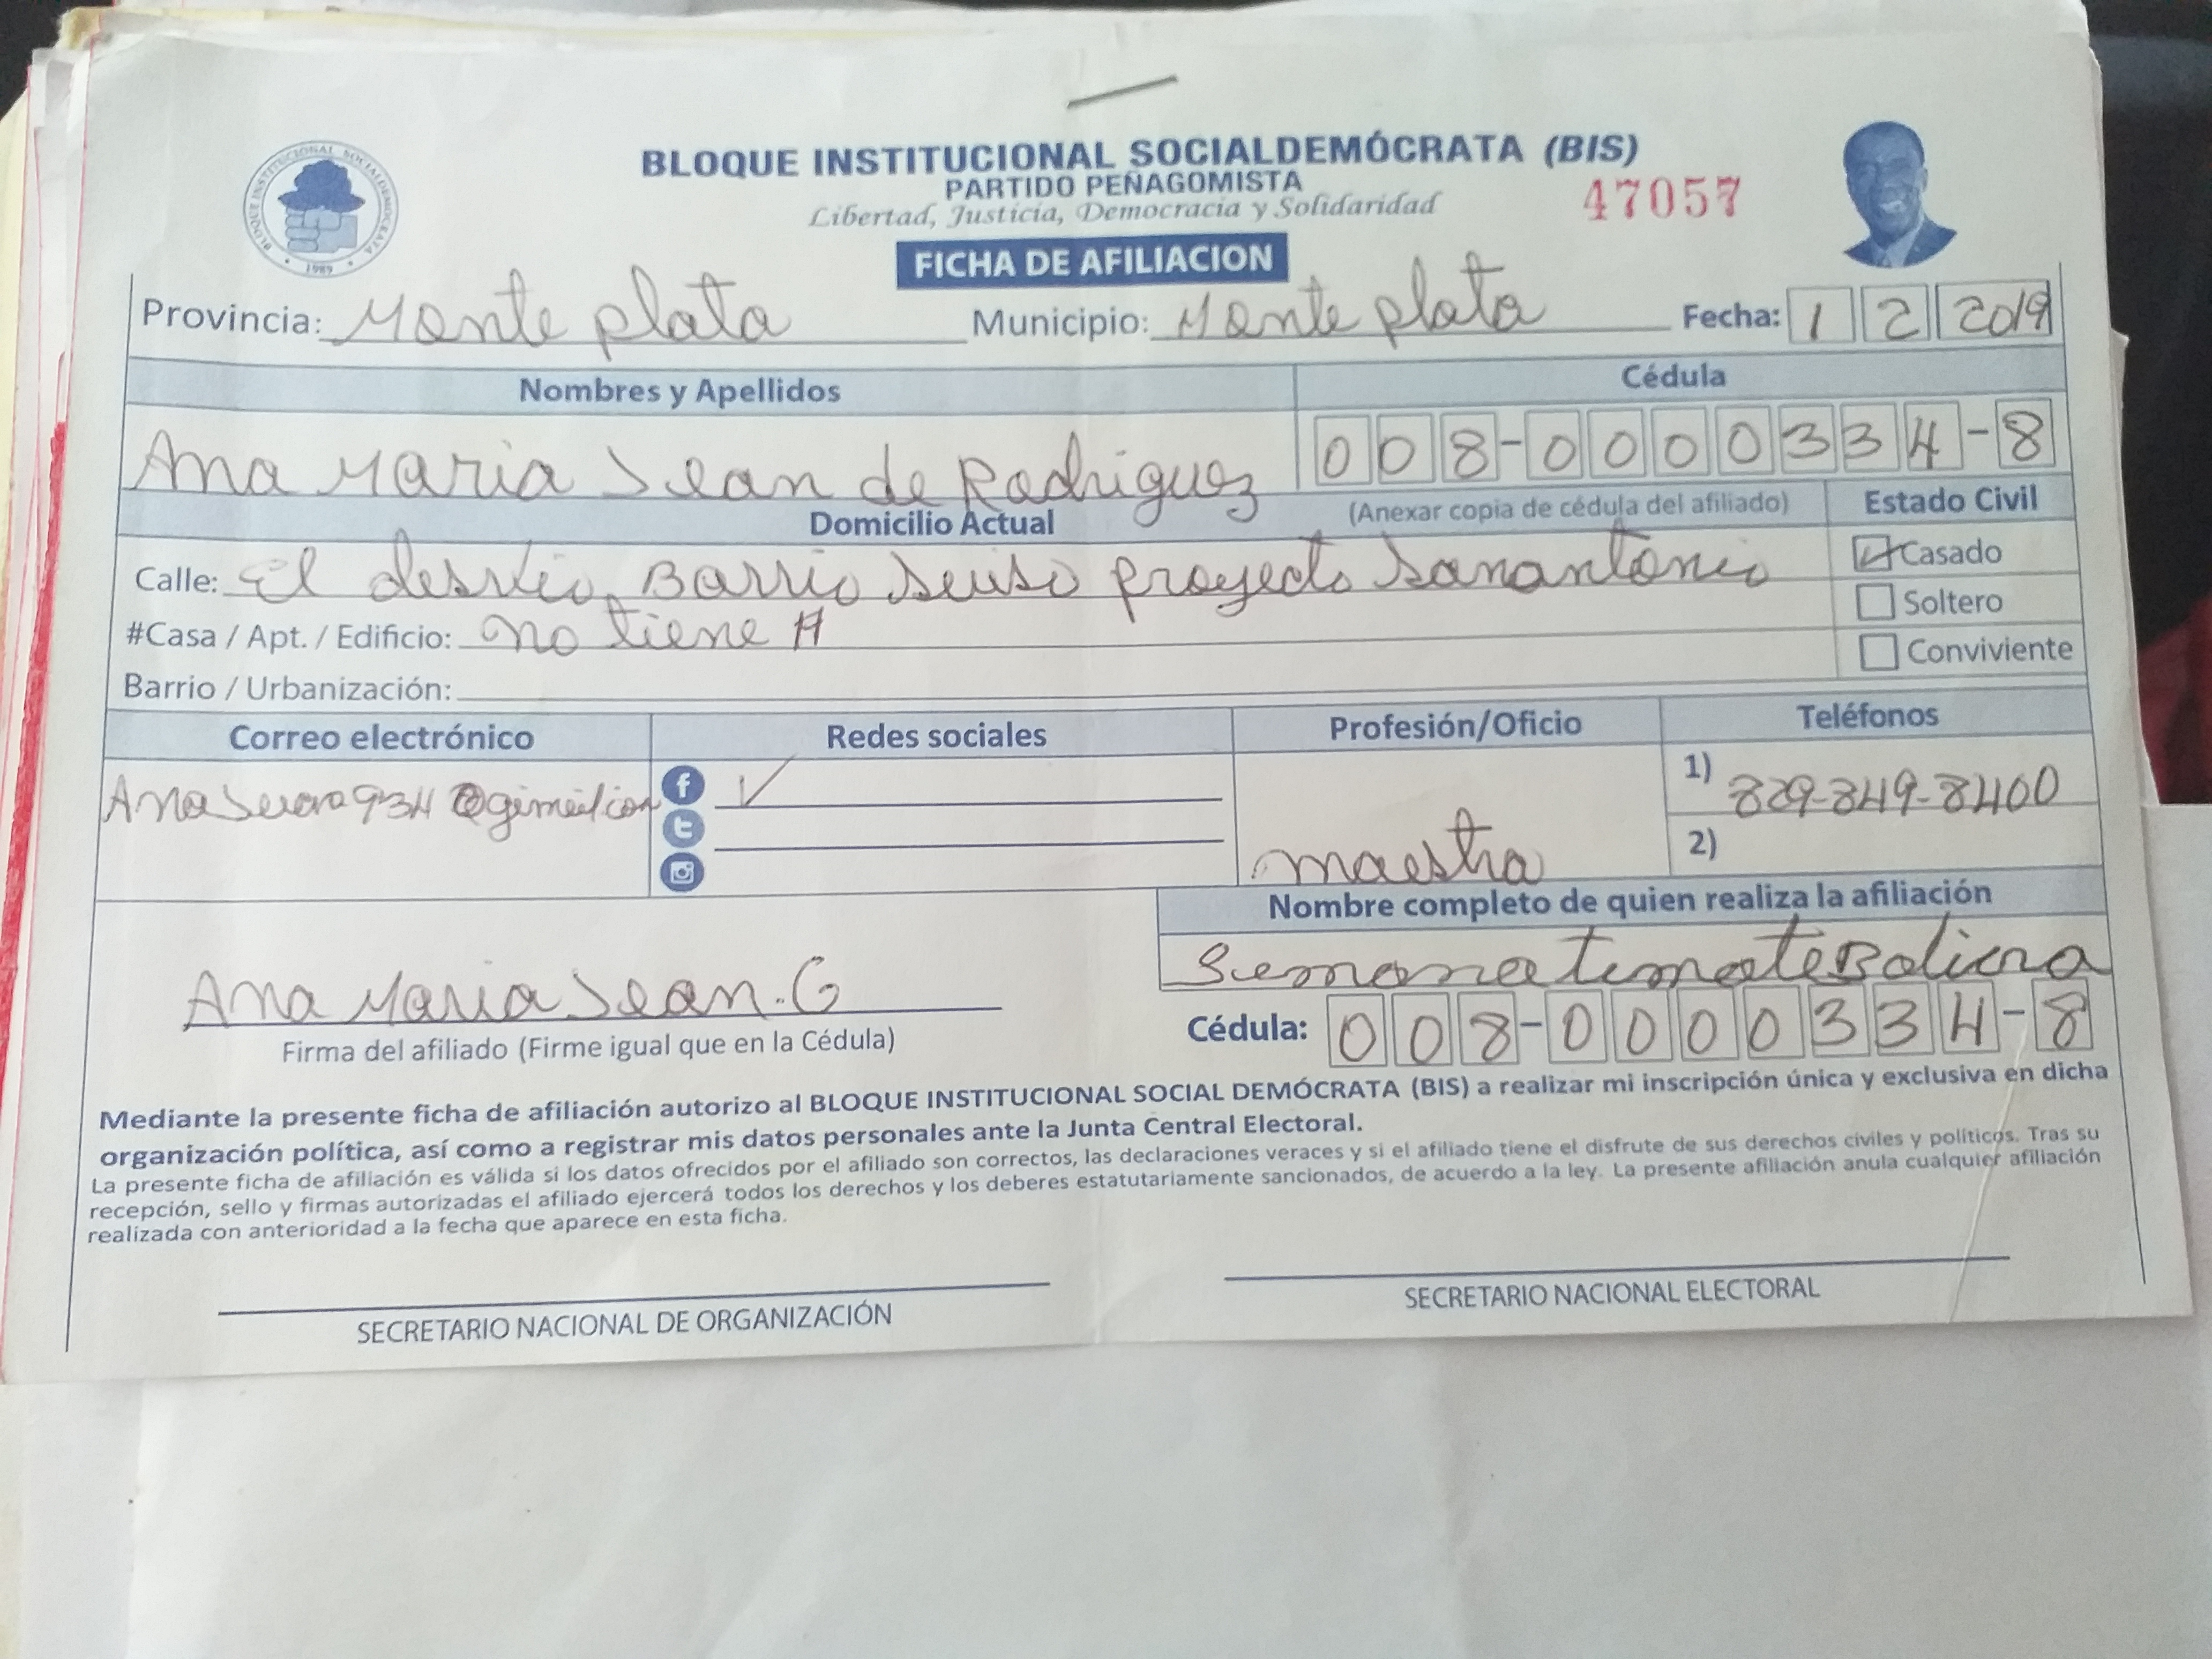 BLOQUE INSTITUCIONAL SOCIALDEMÓCRATA (BIS)
PARTIDO PEÑAGOMISTA
Libertad, Justicia, Democracia y Solidaridad
47057
BLOQUE INSTITUCIONAL SOCIALDEMOCRATA
1989
FICHA DE AFILIACION
Provincia: Monte plata Municipio: Monte plata Fecha: 1 2 2019
Nombres y Apellidos Cédula
Ana Maria Jean de Rodriguez 008-0000334-8
Domicilio Actual (Anexar copia de cédula del afiliado) Estado Civil
Calle: El desvio Barrio proyecto sanantonio Casado
#Casa / Apt. / Edificio: no tiene # Soltero
Barrio / Urbanización: Conviviente
Correo electrónico Redes sociales Profesión/Oficio Teléfonos
1) 829-849-8400
maestra 2)
Nombre completo de quien realiza la afiliación
Ana Maria Jean. G
Firma del afiliado (Firme igual que en la Cédula) Cédula: 008-0000334-8
Mediante la presente ficha de afiliación autorizo al BLOQUE INSTITUCIONAL SOCIAL DEMÓCRATA (BIS) a realizar mi inscripción única y exclusiva en dicha
organización política, así como a registrar mis datos personales ante la Junta Central Electoral.
La presente ficha de afiliación es válida si los datos ofrecidos por el afiliado son correctos, las declaraciones veraces y si el afiliado tiene el disfrute de sus derechos civiles y políticos. Tras su
recepción, sello y firmas autorizadas el afiliado ejercerá todos los derechos y los deberes estatutariamente sancionados, de acuerdo a la ley. La presente afiliación anula cualquier afiliación
realizada con anterioridad a la fecha que aparece en esta ficha.
SECRETARIO NACIONAL DE ORGANIZACIÓN SECRETARIO NACIONAL ELECTORAL